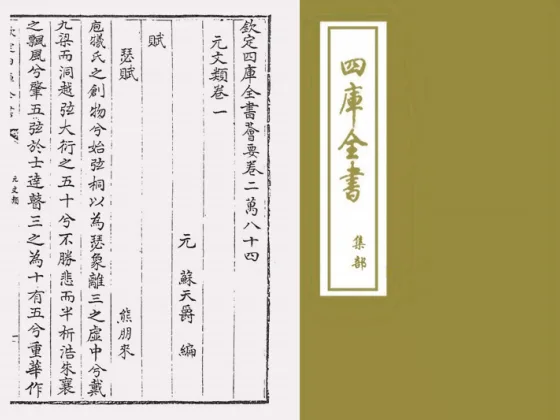 欽定四庫全書薈要卷二萬八十四
元文類卷一
元 蘇天爵 編
賦
瑟賦 熊朋來
庖犧氏之創物兮始弦桐以為瑟象離三之虛中兮戴
九梁而洞越弦大衍之五十兮不勝悲而半析浩朱襄
之飄風兮肇五弦於士達瞽三之為十有五兮重華作
元文類
四庫全書
集部